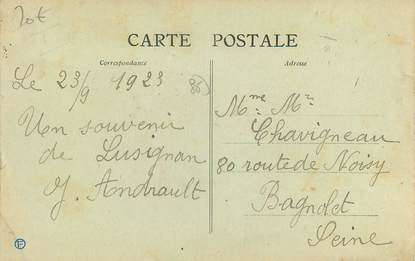 Lot
CARTE POSTALE
Correspondance
Adresse
Le 23/9 1923
86
Un souvenir
de Lusignan
J. Andrault
Mme Mr
Chavigneau
80 route de Noisy
Bagnolet
Seine